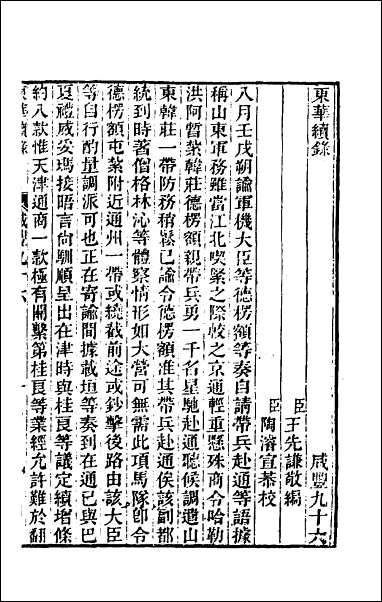 東華續錄　咸豐九十六
臣王先謙敬編
臣陶濬宣恭校
八月壬戌朔諭軍機大臣等德楞額等奏自請帶兵赴通等語據
稱山東軍務雖當江北喫緊之際較之京通輕重懸殊商令哈勒
洪阿暫紮韓莊德楞額親帶兵勇一千名星馳赴通聽候調遣山
東韓莊一帶防務稍鬆已諭令德楞額准其帶兵赴通俟該副都
統到時著僧格林沁等體察情形如大營可無需此項馬隊卽令
德楞額屯紮附近通州一帶或繞截前途或鈔擊後路由該大臣
等自行酌量調派可也正在寄諭間據載垣等奏到在通已與巴
夏禮威妥瑪接晤言向馴順呈出在津時與桂良等議定續增條
約八款惟天津通商一款極有關繫第桂良等業經允許難於翻
東華續錄　咸豐九十六　一